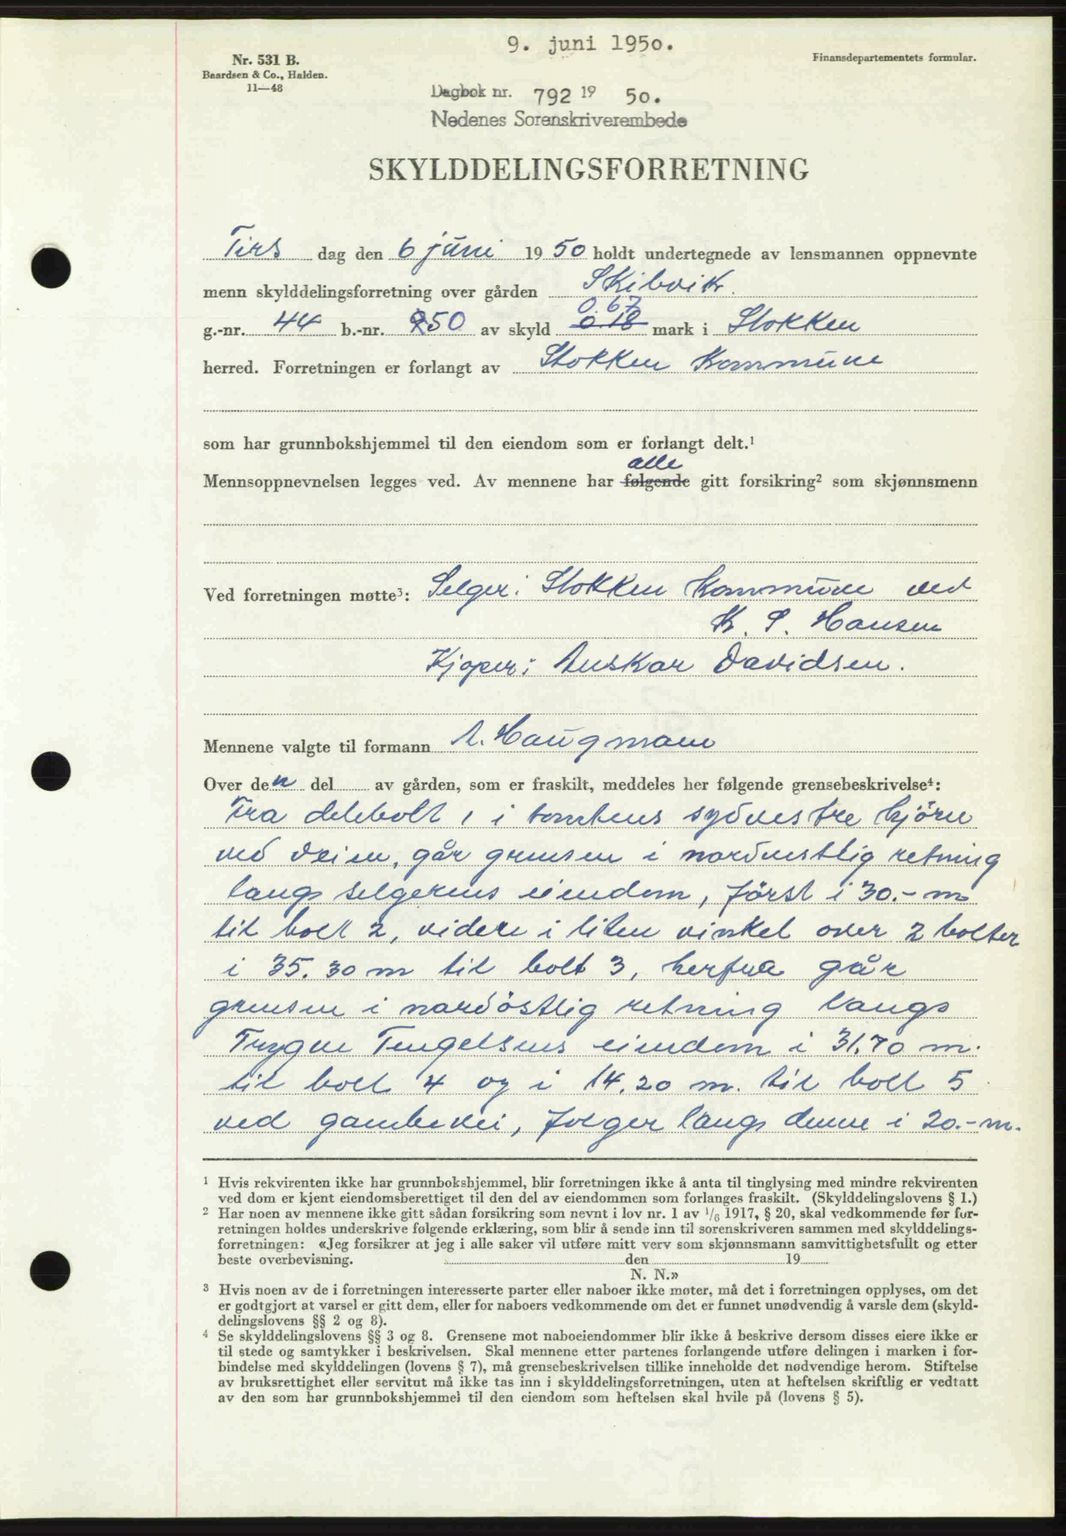 9. juni 1950.
Nr. 531 B.
Baardsen & Co., Halden.
11—48
Finansdepartementets formular.
Dagbok nr. 792 19 50.
Nedenes Sorenskriverembede
SKYLDDELINGSFORRETNING
Tirs dag den 6 juni 1950 holdt undertegnede av lensmannen oppnevnte
menn skylddelingsforretning over gården Skibvik.
0.67
g.-nr. 44 b.-nr. 250 av skyld 0.18 mark i Stokken
herred. Forretningen er forlangt av Stokken Kommune
som har grunnbokshjemmel til den eiendom som er forlangt delt.¹
alle
Mennsoppnevnelsen legges ved. Av mennene har følgende gitt forsikring² som skjønnsmenn
Ved forretningen møtte³: Selger: Stokken Kommune ved
K. S. Hansen
Kjøper: Anskar Davidsen.
Mennene valgte til formann A. Haugmann
Over den del av gården, som er fraskilt, meddeles her følgende grensebeskrivelse⁴:
Fra delebolt 1 i tomtens sydvestre hjörne
ved veien, går grensen i nordvestlig retning
langs selgerens eiendom, först i 30.- m
til bolt 2, videre i liten vinkel over 2 bolter
i 35.30 m til bolt 3, herfra går
grensen i nordöstlig retning langs
Trygve Tengelsens eiendom i 31.70 m.
til bolt 4 og i 14.20 m. til bolt 5
ved gamlevei, følger langs denne i 20.- m.
¹ Hvis rekvirenten ikke har grunnbokshjemmel, blir forretningen ikke å anta til tinglysing med mindre rekvirenten
ved dom er kjent eiendomsberettiget til den del av eiendommen som forlanges fraskilt. (Skylddelingslovens § 1.)
² Har noen av mennene ikke gitt sådan forsikring som nevnt i lov nr. 1 av 1/6 1917, § 20, skal vedkommende før for-
retningen holdes underskrive følgende erklæring, som blir å sende inn til sorenskriveren sammen med skylddelings-
forretningen: «Jeg forsikrer at jeg i alle saker vil utføre mitt verv som skjønnsmann samvittighetsfullt og etter
beste overbevisning. den 19
N. N.»
³ Hvis noen av de i forretningen interesserte parter eller naboer ikke møter, må det i forretningen opplyses, om det
er godtgjort at varsel er gitt dem, eller for naboers vedkommende om det er funnet unødvendig å varsle dem (skyld-
delingslovens §§ 2 og 8).
⁴ Se skylddelingslovens §§ 3 og 8. Grensene mot naboeiendommer blir ikke å beskrive dersom disses eiere ikke er
til stede og samtykker i beskrivelsen. Skal mennene etter partenes forlangende utføre delingen i marken i for-
bindelse med skylddelingen (lovens § 7), må grensebeskrivelsen tillike inneholde det nødvendige herom. Stiftelse
av bruksrettighet eller servitut må ikke tas inn i skylddelingsforretningen, uten at heftelsen skriftlig er vedtatt
av den som har grunnbokshjemmel til den eiendom som heftelsen skal hvile på (lovens § 5).